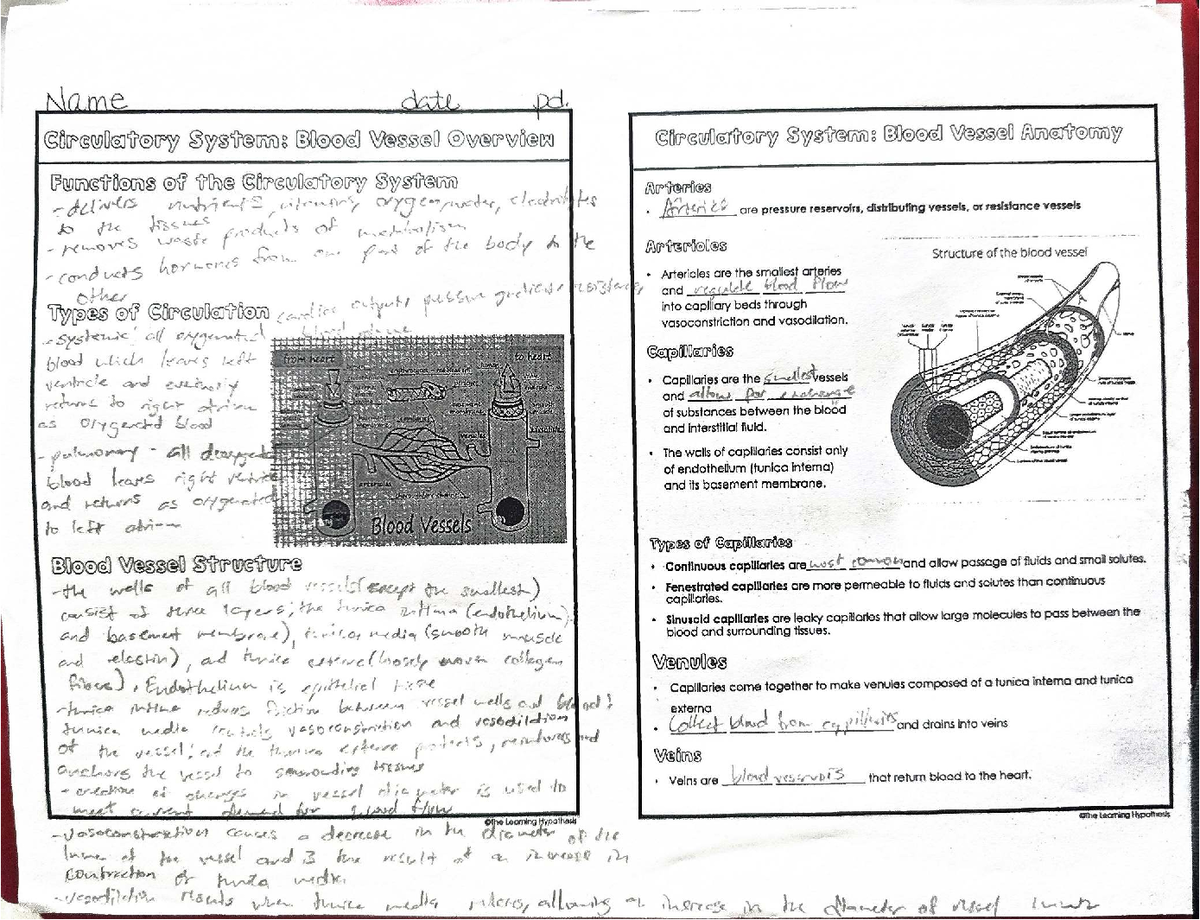 Name date pd.
Circulatory System: Blood Vessel Overview
Functions of the Circulatory System
- delivers nutrients, vitamins, oxygen, water, electrolytes
to the tissues
- removes waste products of metabolism
- conducts hormones from one part of the body to the
other
Types of Circulation
cardiac output, pressure gradients, resistance,
blood volume
- systemic: all oxygenated
blood which leaves left
ventricle and
returns to right atrium
as blood
- pulmonary - all
blood leaves right ventricle
and returns as oxygenated
to left atrium
from heart
to heart
Blood Vessels
Blood Vessel Structure
- the walls of all blood vessels (except the smallest)
consist of three layers; the tunica intima (endothelium
and basement membrane), tunica media (smooth muscle
and elastin), and tunica externa (loosely woven collagen
fibers). Endothelium is epithelial tissue
- tunica intima reduces friction between vessel walls and blood;
tunica media controls vasoconstriction and vasodilation
of the vessel; and the tunica externa protects, reinforces and
anchors the vessel to surrounding tissues
- of changes in vessel diameter is used to
meet current demand for blood flow
©The Learning Hypothesis
- vasoconstriction causes a decrease in the diameter of the
lumen of the vessel and is the result of an increase in
contraction of tunica media
- vasodilation results when tunica media relaxes, allowing an increase in the diameter of vessel lumen
Circulatory System: Blood Vessel Anatomy
Arteries
• Arteries are pressure reservoirs, distributing vessels, or resistance vessels
Arterioles
• Arterioles are the smallest arteries
and regulate blood flow
into capillary beds through
vasoconstriction and vasodilation.
Structure of the blood vessel
Capillaries
• Capillaries are the smallest vessels
and allow for exchange
of substances between the blood
and interstitial fluid.
• The walls of capillaries consist only
of endothelium (tunica interna)
and its basement membrane.
Types of Capillaries
• Continuous capillaries are most common and allow passage of fluids and small solutes.
• Fenestrated capillaries are more permeable to fluids and solutes than continuous
capillaries.
• Sinusoid capillaries are leaky capillaries that allow large molecules to pass between the
blood and surrounding tissues.
Venules
• Capillaries come together to make venules composed of a tunica interna and tunica
externa
• Collect blood from capillaries and drains into veins
Veins
• Veins are blood reservoirs that return blood to the heart.
©The Learning Hypothesis